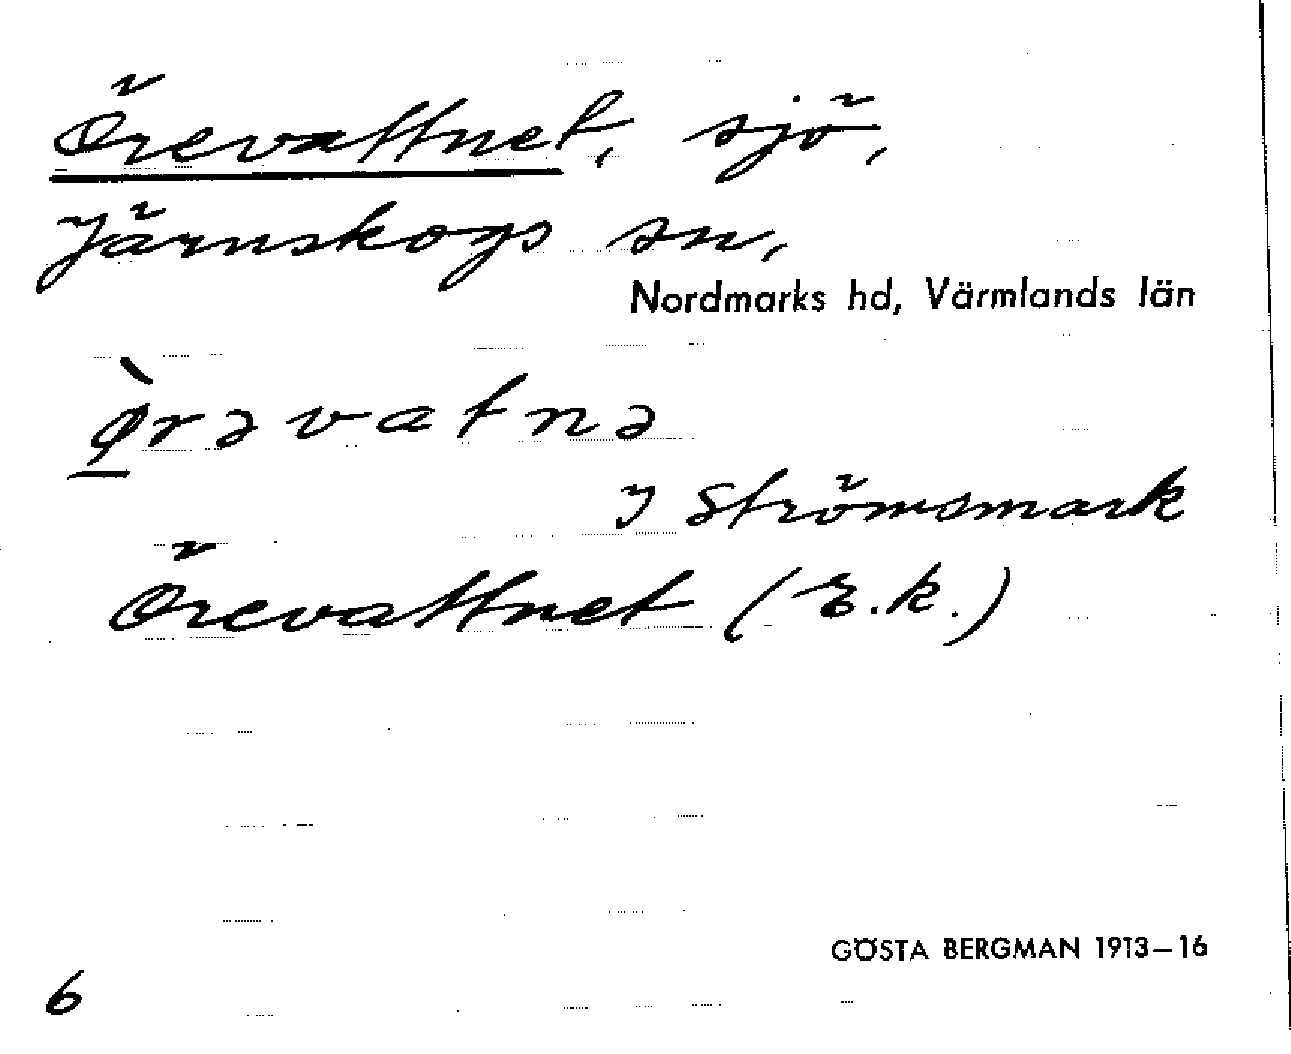 Örevattnet, sjö,
Järnskogs sn,
Nordmarks hd, Värmlands län
ø̱̀rəvatnə
I Strömsmark
Örevattnet (E.k.)
GÖSTA BERGMAN 1913–16
6